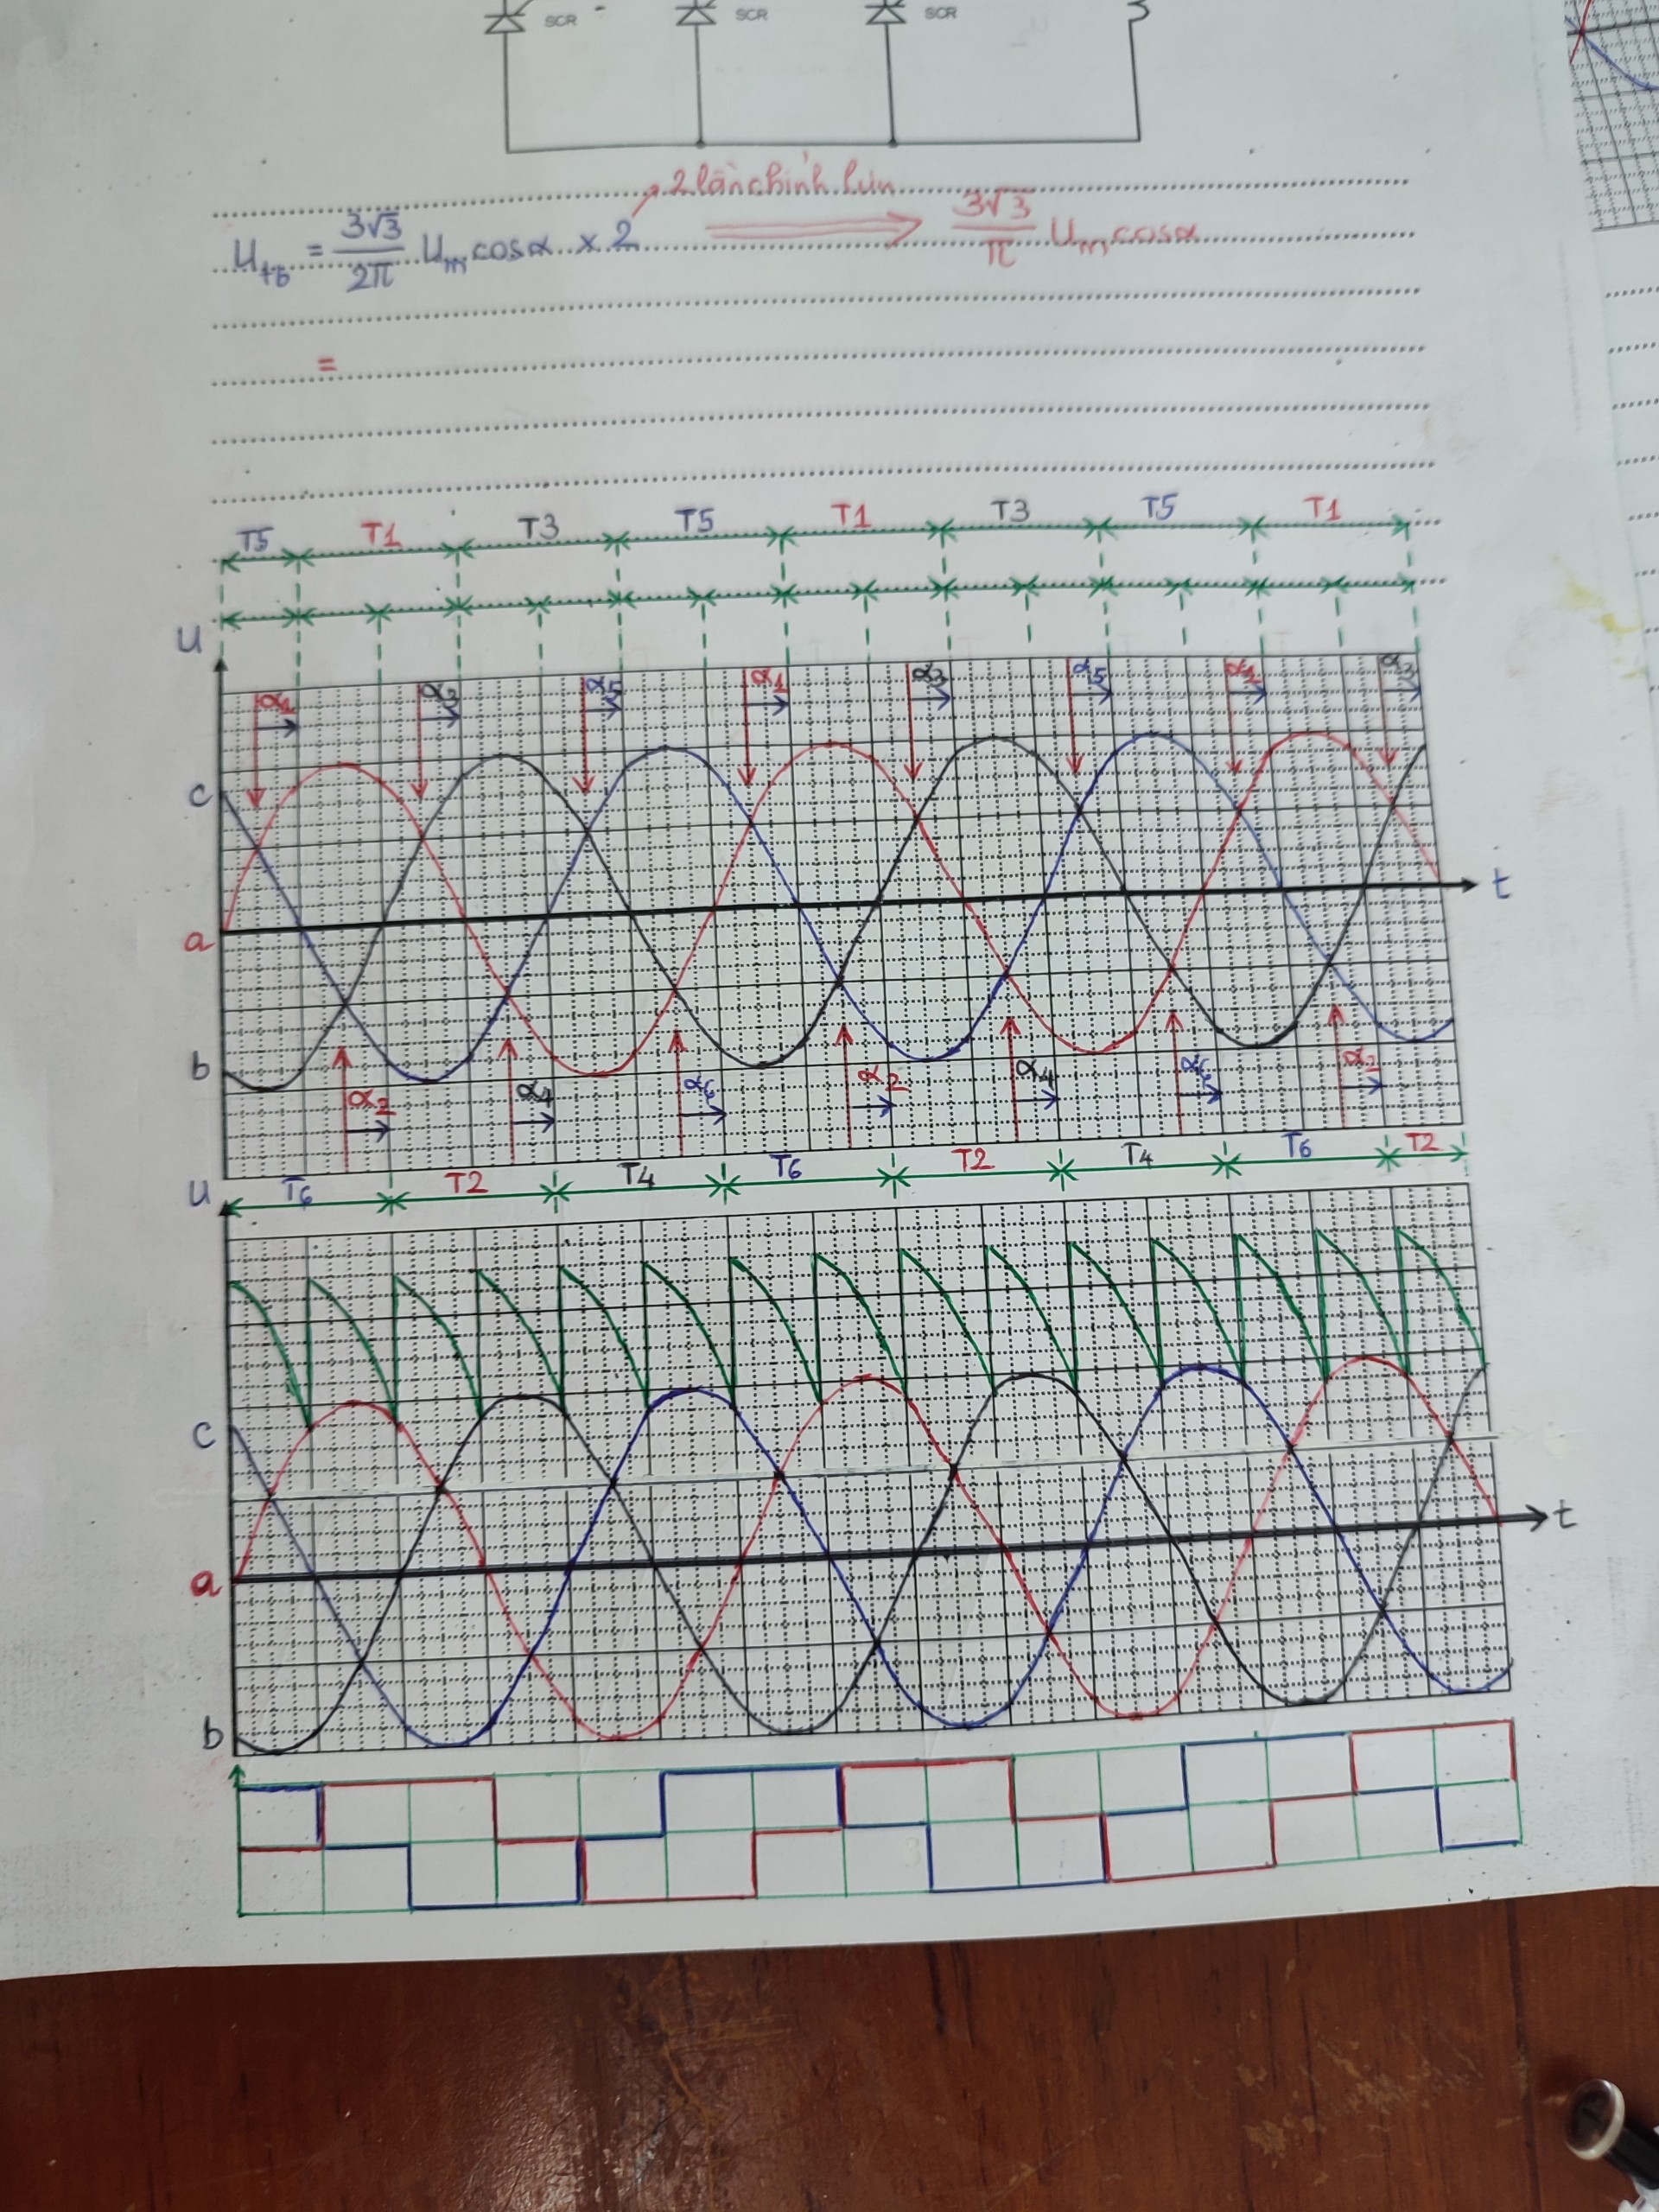 SCR SCR SCR
2 lần chỉnh lưu
Utb = 3√3/2π Um cosα x 2 ⟹ 3√3/π Um cosα
=
T5 T1 T3 T5 T1 T3 T5 T1
U
α1 α3 α5 α1 α3 α5 α1 α3
c
t
a
b
α2 α4 α6 α2 α4 α6 α2
T6 T2 T4 T6 T2 T4 T6 T2
U
c
t
a
b